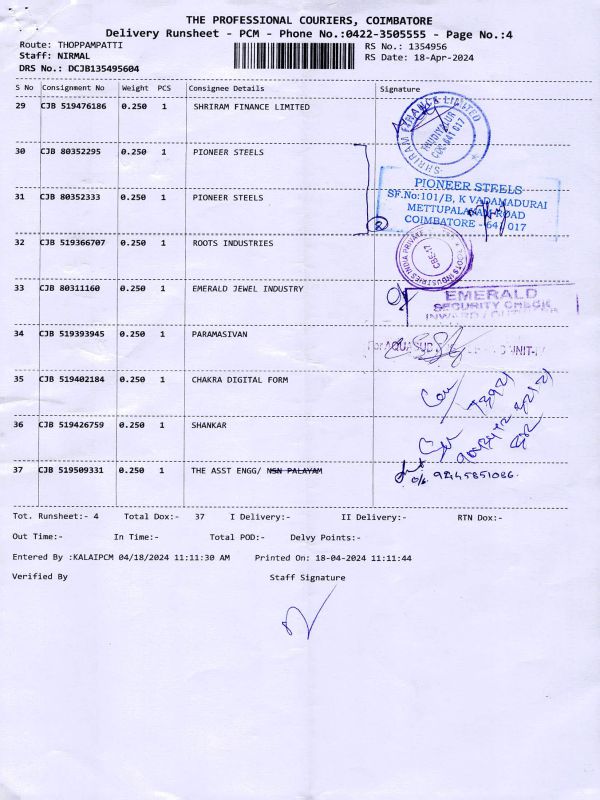 THE PROFESSIONAL COURIERS, COIMBATORE
Delivery Runsheet - PCM - Phone No.:0422-3505555 - Page No.:4
Route: THOPPAMPATTI RS No.: 1354956
Staff: NIRMAL RS Date: 18-Apr-2024
DRS No.: DCJB135495604
S No Consignment No Weight PCS Consignee Details Signature
29 CJB 519476186 0.250 1 SHRIRAM FINANCE LIMITED
SHRIRAM FINANCE LIMITED
THUDIYALUR
30 CJB 80352295 0.250 1 PIONEER STEELS
31 CJB 80352333 0.250 1 PIONEER STEELS
2
PIONEER STEELS
SF.No:101/B, K VADAMADURAI
METTUPALAYAM ROAD
COIMBATORE - 641 017
32 CJB 519366707 0.250 1 ROOTS INDUSTRIES
ROOTS INDUSTRIES INDIA PRIVATE
33 CJB 80311160 0.250 1 EMERALD JEWEL INDUSTRY
EMERALD
SECURITY CHECK
INWARD / OUTWARD
34 CJB 519393945 0.250 1 PARAMASIVAN
35 CJB 519402184 0.250 1 CHAKRA DIGITAL FORM
36 CJB 519426759 0.250 1 SHANKAR
37 CJB 519509331 0.250 1 THE ASST ENGG/ NSN PALAYAM
9245851086.
Tot. Runsheet:- 4 Total Dox:- 37 I Delivery:- II Delivery:- RTN Dox:-
Out Time:- In Time:- Total POD:- Delvy Points:-
Entered By :KALAIPCM 04/18/2024 11:11:30 AM Printed On: 18-04-2024 11:11:44
Verified By Staff Signature